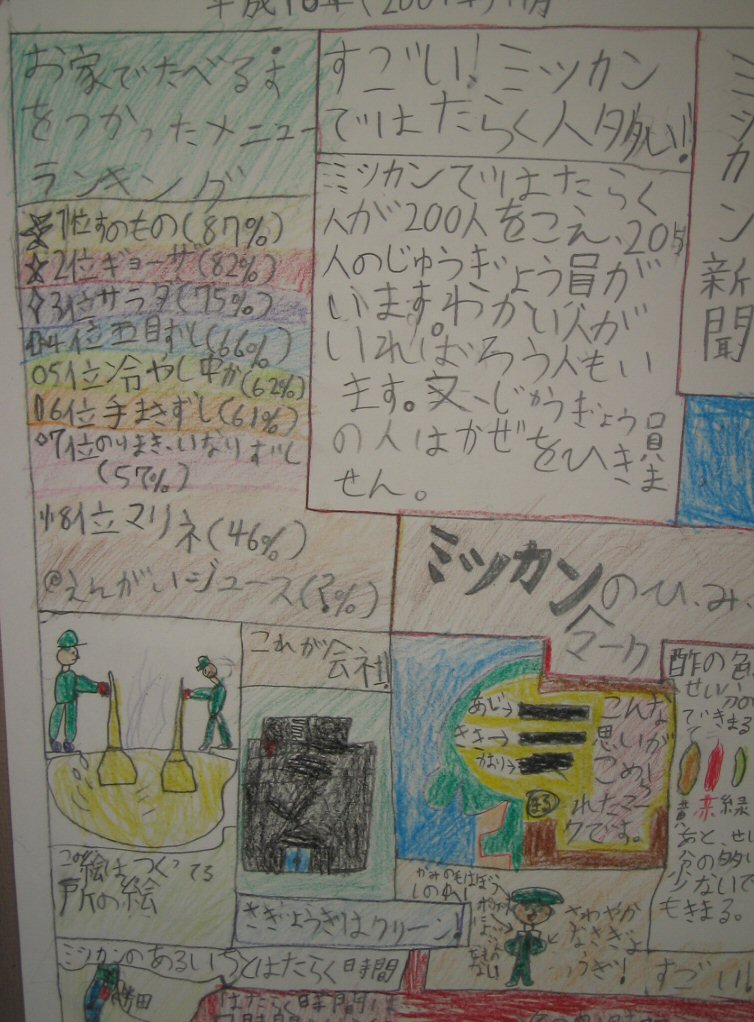 ミツカン新聞
すごい!ミツカン
ではたらく人多い!
ミツカンではたらく
人が200人をこえ、205
人のじゅうぎょう員が
います。わかい人が
いればろう人もい
ます。又、じゅうぎょう員
の人はかぜをひきま
せん。
お家でたべるす
をつかったメニュー
ランキング
1位すのもの(87%)
2位ギョーザ(82%)
3位サラダ(75%)
4位五目ずし(66%)
5位冷やし中か(62%)
6位手まきずし(61%)
7位のりまき、いなりずし
(57%)
8位マリネ(46%)
@えんがいジュース(?%)
ミツカンのひ、み、
マーク
酢の色
せい分が
できまる
黄赤緑
あと、せい
分の多い
少ないで
もきまる。
あじ→
きき→
かおり→
こんな
思いが
こめら
れたマー
クです。
これが会社!
この絵はつくってる
所の絵
さぎょうぎはクリーン!
さわやか
なさぎょ
うぎ!
すごい!
ミツカンのあるいちとはたらく時間
はたらく時間は